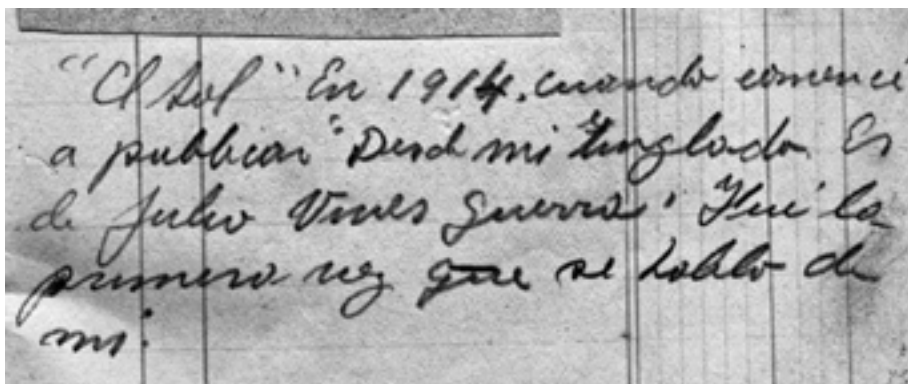 "El Sol" En 1914. cuando comencé
a publicar "Desde mi tinglado. Es
de Julio Vives Guerra. Fué la
primera vez que se habló de
mi.